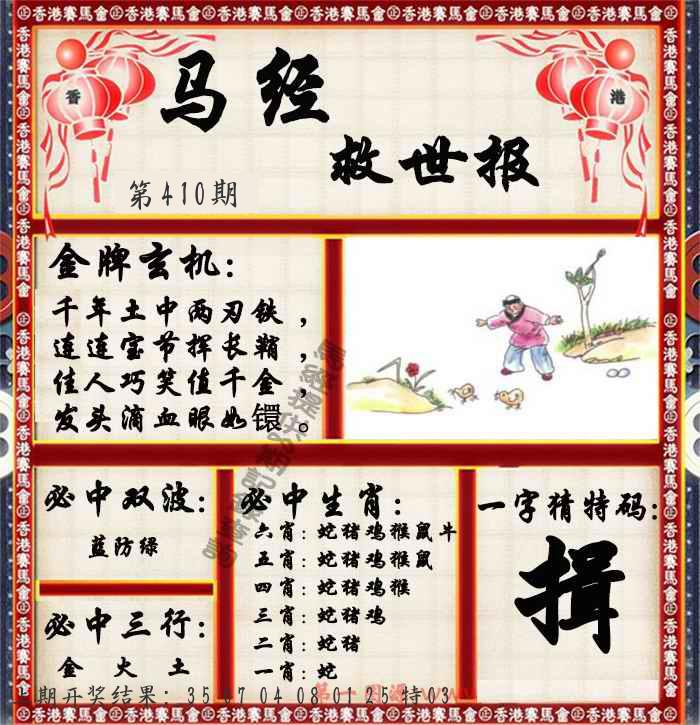 香港賽馬會
香 港
马经
救世报
第410期
金牌玄机：
千年土中两刃铁，
连连宝节挥长鞘，
佳人巧笑值千金，
发头滴血眼如镮。
必中双波：
蓝防绿
必中三行：
金 火 土
必中生肖：
六肖：蛇猪鸡猴鼠牛
五肖：蛇猪鸡猴鼠
四肖：蛇猪鸡猴
三肖：蛇猪鸡
二肖：蛇猪
一肖：蛇
一字猜特码：
揖
期开奖结果：35 07 04 08 01 25特03